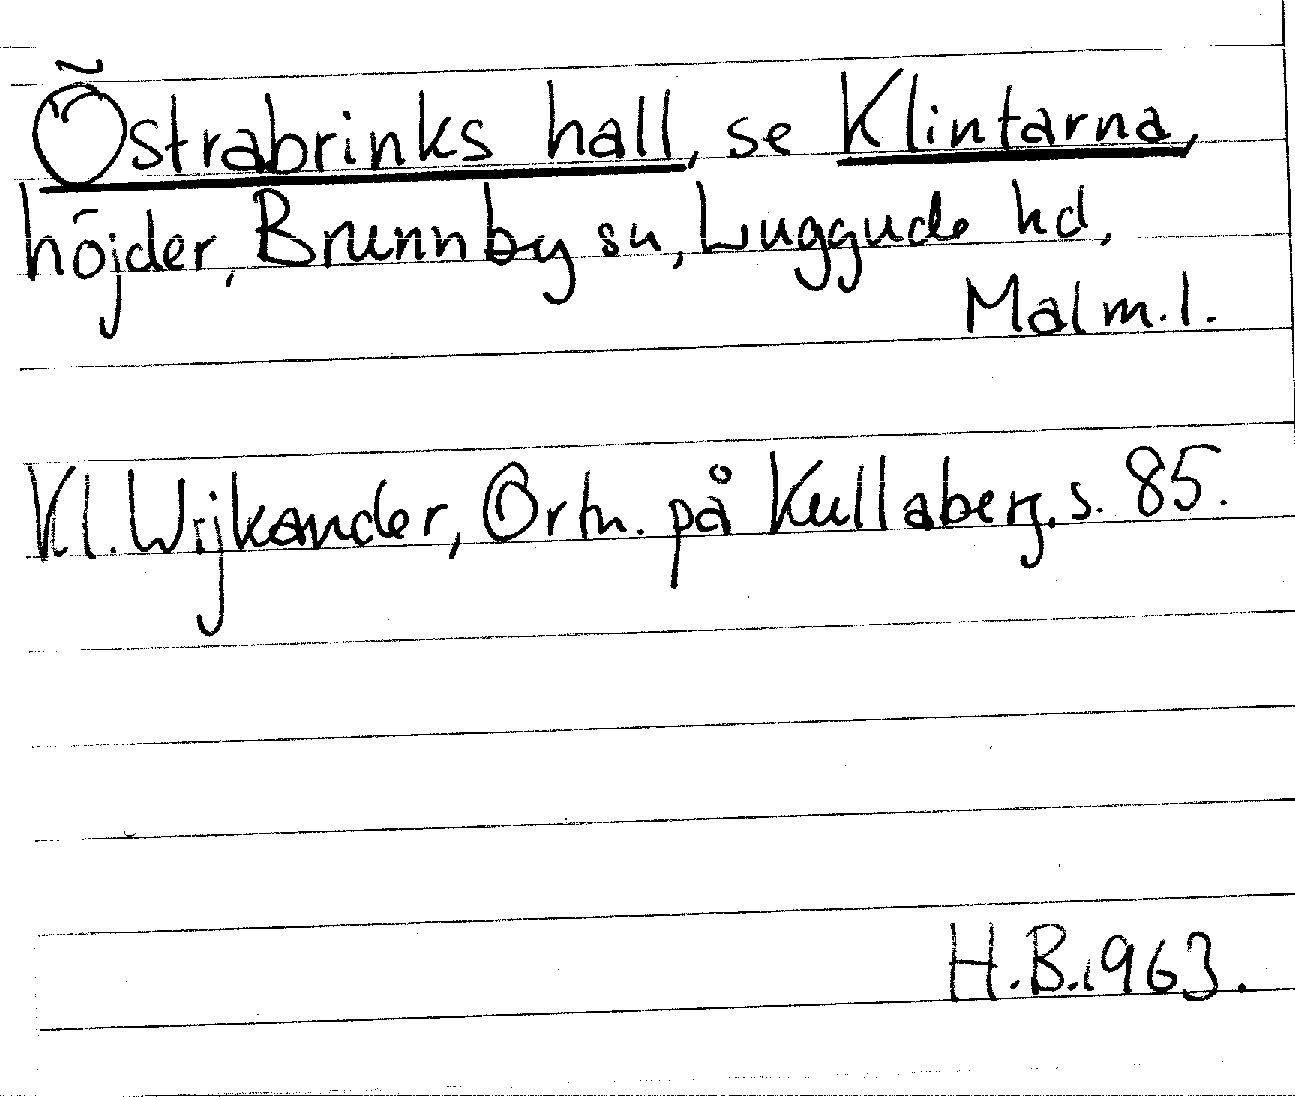 Östrabrinks hall, se Klintarna,
höjder, Brunnby sn, Luggude hd,
Malm.l.
Kl. Wijkander, Ortn. på Kullaberg. s. 85.
H.B.1963.